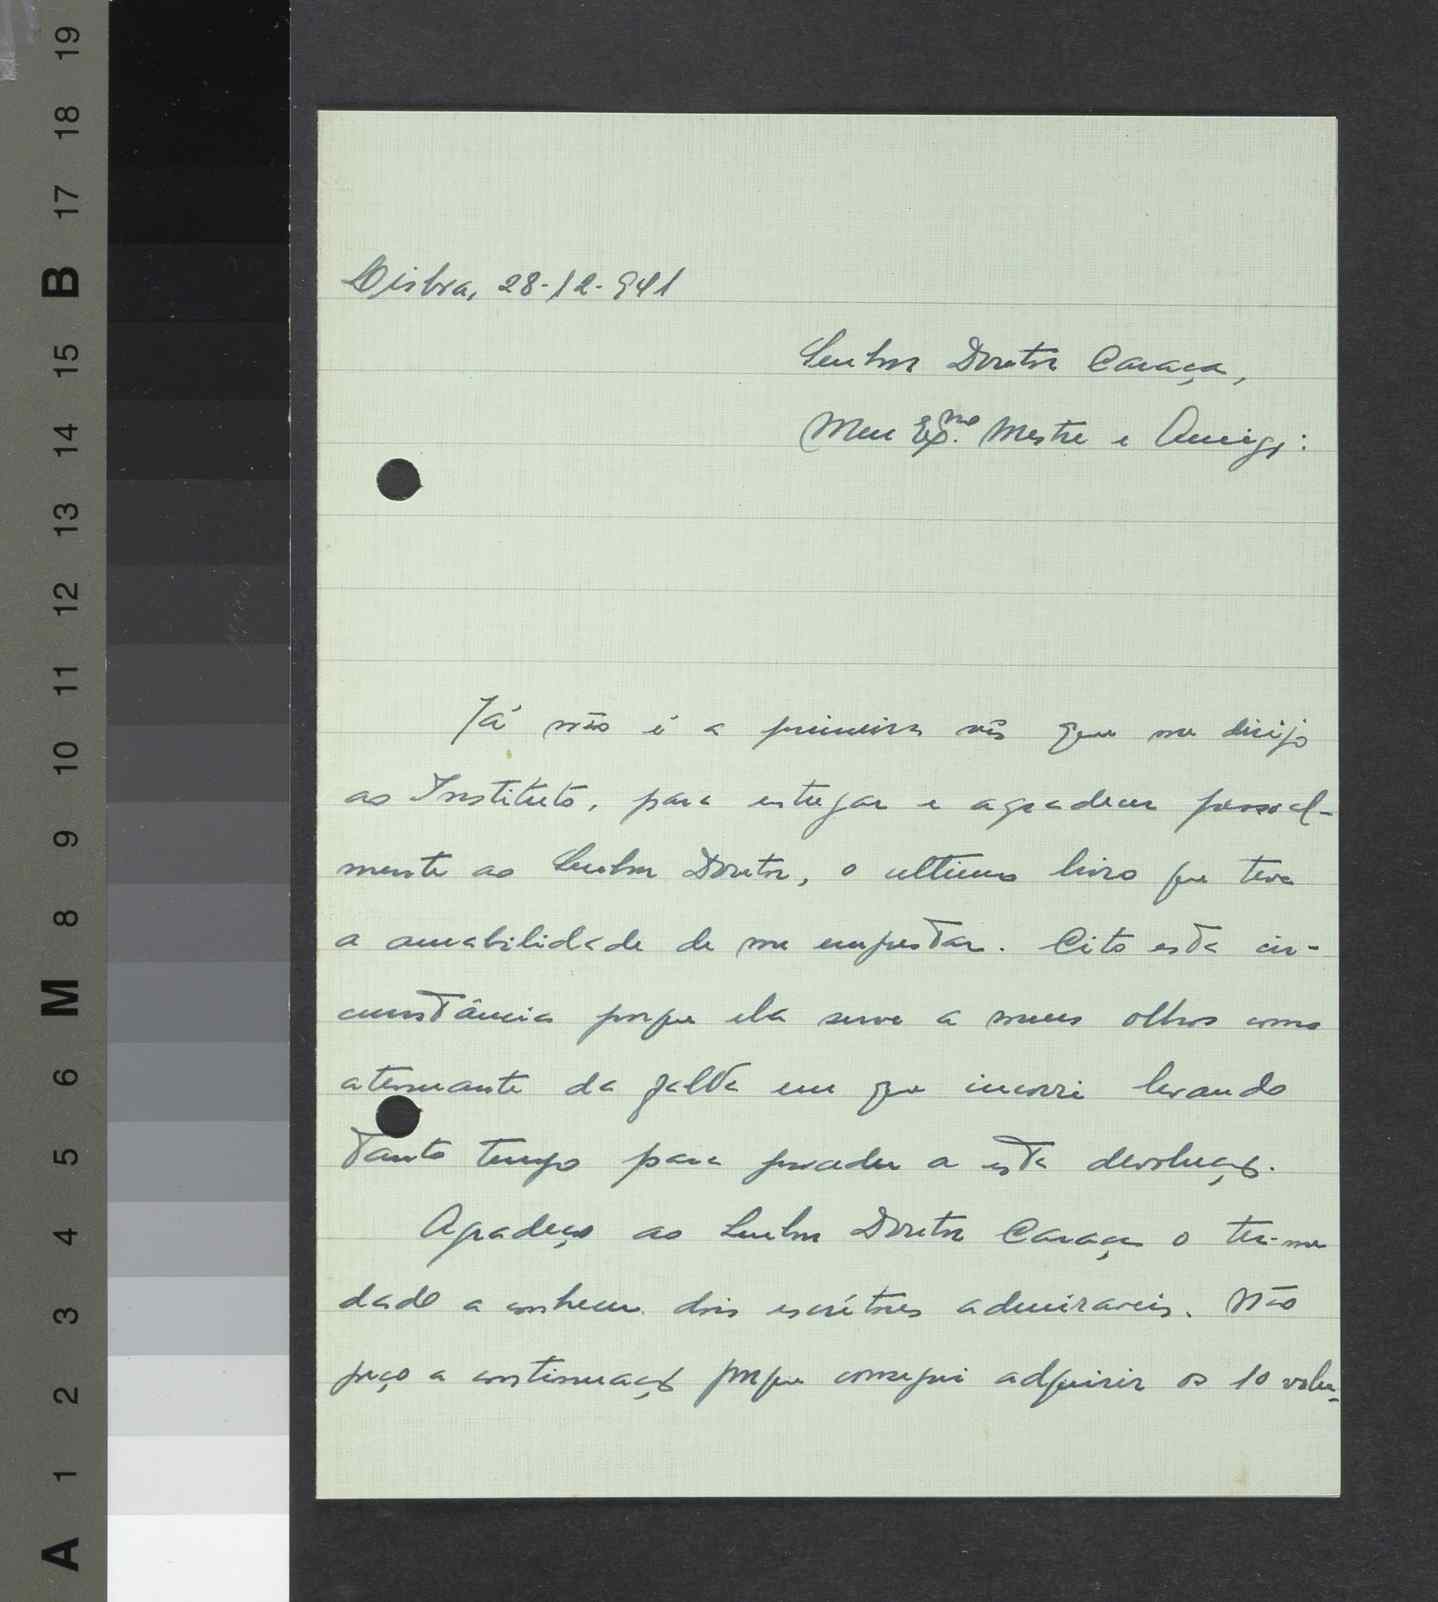 Lisboa, 28-12-941
Senhor Doutor Caraça,
Meu Exmo. Mestre e Amigo:
Já não é a primeira vês que me dirijo
ao Instituto, para entregar e agradecer pessoal-
mente ao Senhor Doutor, o ultimo livro que teve
a amabilidade de me emprestar. Cito esta cir-
cunstância porque ela serve a meus olhos como
atenuante da falta em que incorri levando
tanto tempo para proceder a esta devolução.
Agradeço ao Senhor Doutor Caraça o ter-me
dado a conhecer dois escritores admiraveis. Não
peço a continuação porque consegui adquirir os 10 volu-
19
18
17
B
15
14
13
12
11
10
9
8
M
6
5
4
3
2
1
A